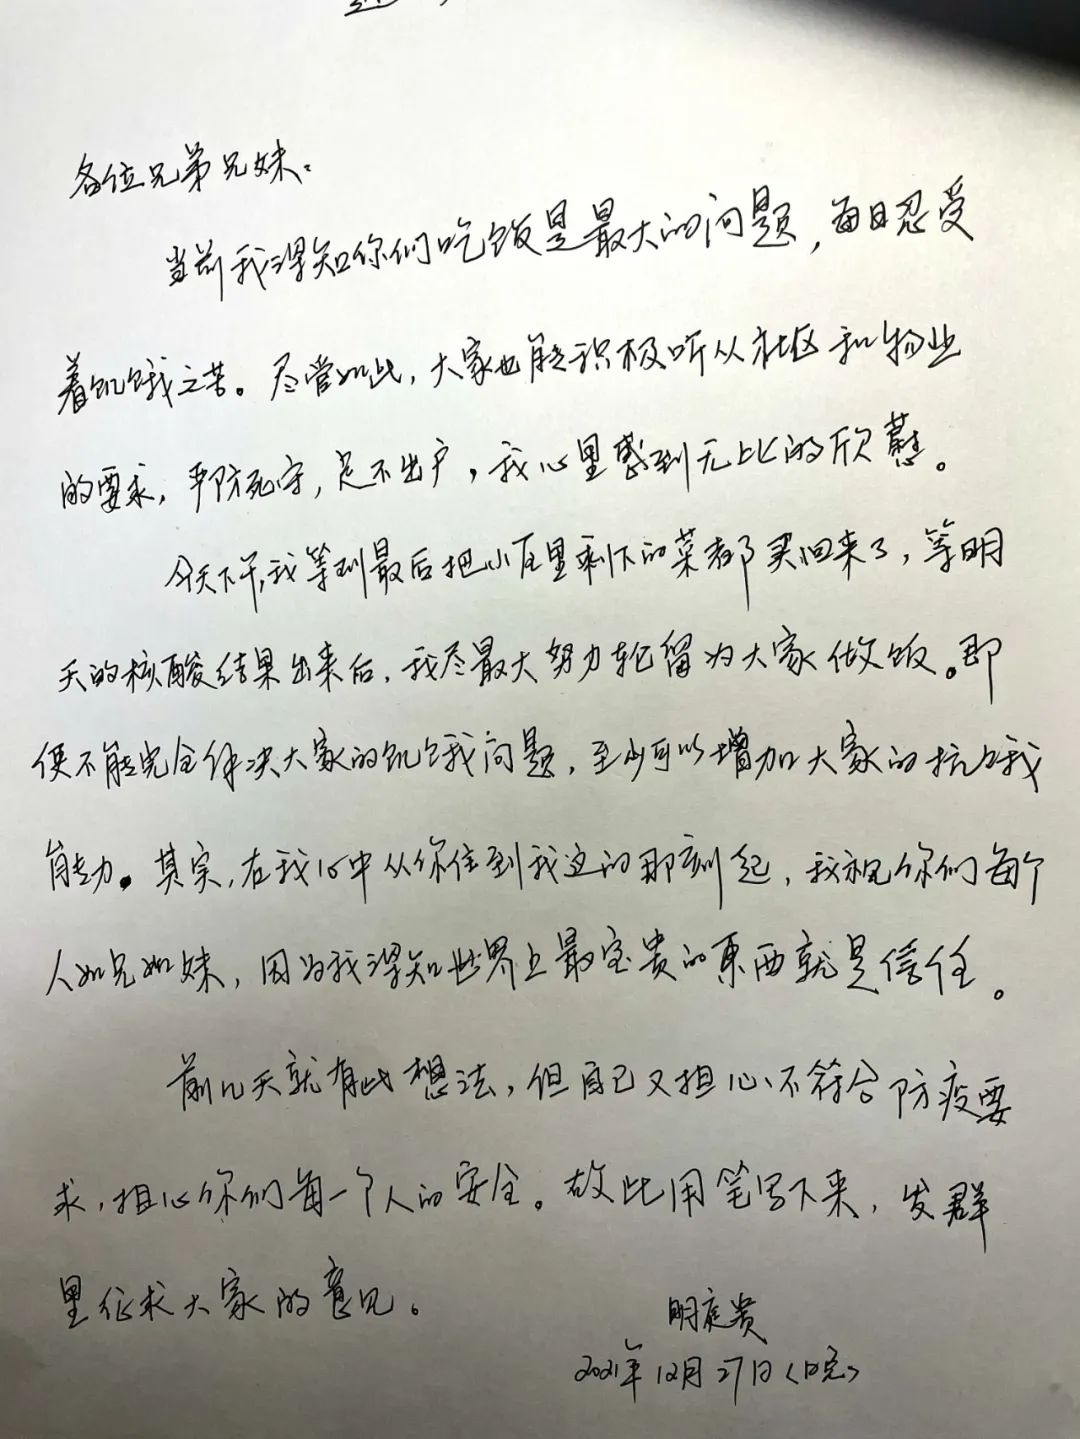 各位兄弟兄妹：
当前我得知你们吃饭是最大的问题，每日忍受
着饥饿之苦。尽管如此，大家也能积极听从社区和物业
的要求，严防死守，足不出户，我心里感到无比的欣慰。
今天下午，我等到最后把小店里剩下的菜都买回来了，等明
天的核酸结果出来后，我尽最大努力轮留为大家做饭。即
便不能完全解决大家的饥饿问题，至少可以增加大家的抗饿
能力。其实，在我心中从你住到我这的那刻起，我视你们每个
人如兄如妹，因为我得知世界上最宝贵的東西就是信任。
前几天就有此想法，但自己又担心不符合防疫要
求，担心你们每一个人的安全。故此用笔写下来，发群
里征求大家的意见。
明庭贵
2021年12月27日（晚）